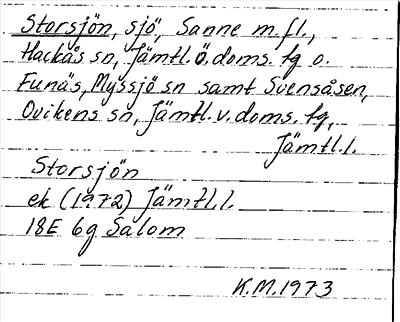 Storsjön, sjö, Sanne m.fl.,
Hackås sn, Jämtl.ö.doms.tg o.
Funäs, Myssjö sn samt Svensåsen,
Ovikens sn, Jämtl.v.doms.tg,
Jämtl.l.
Storsjön
ek (1972) Jämtl.l.
18E 6g Salom
K.M.1973